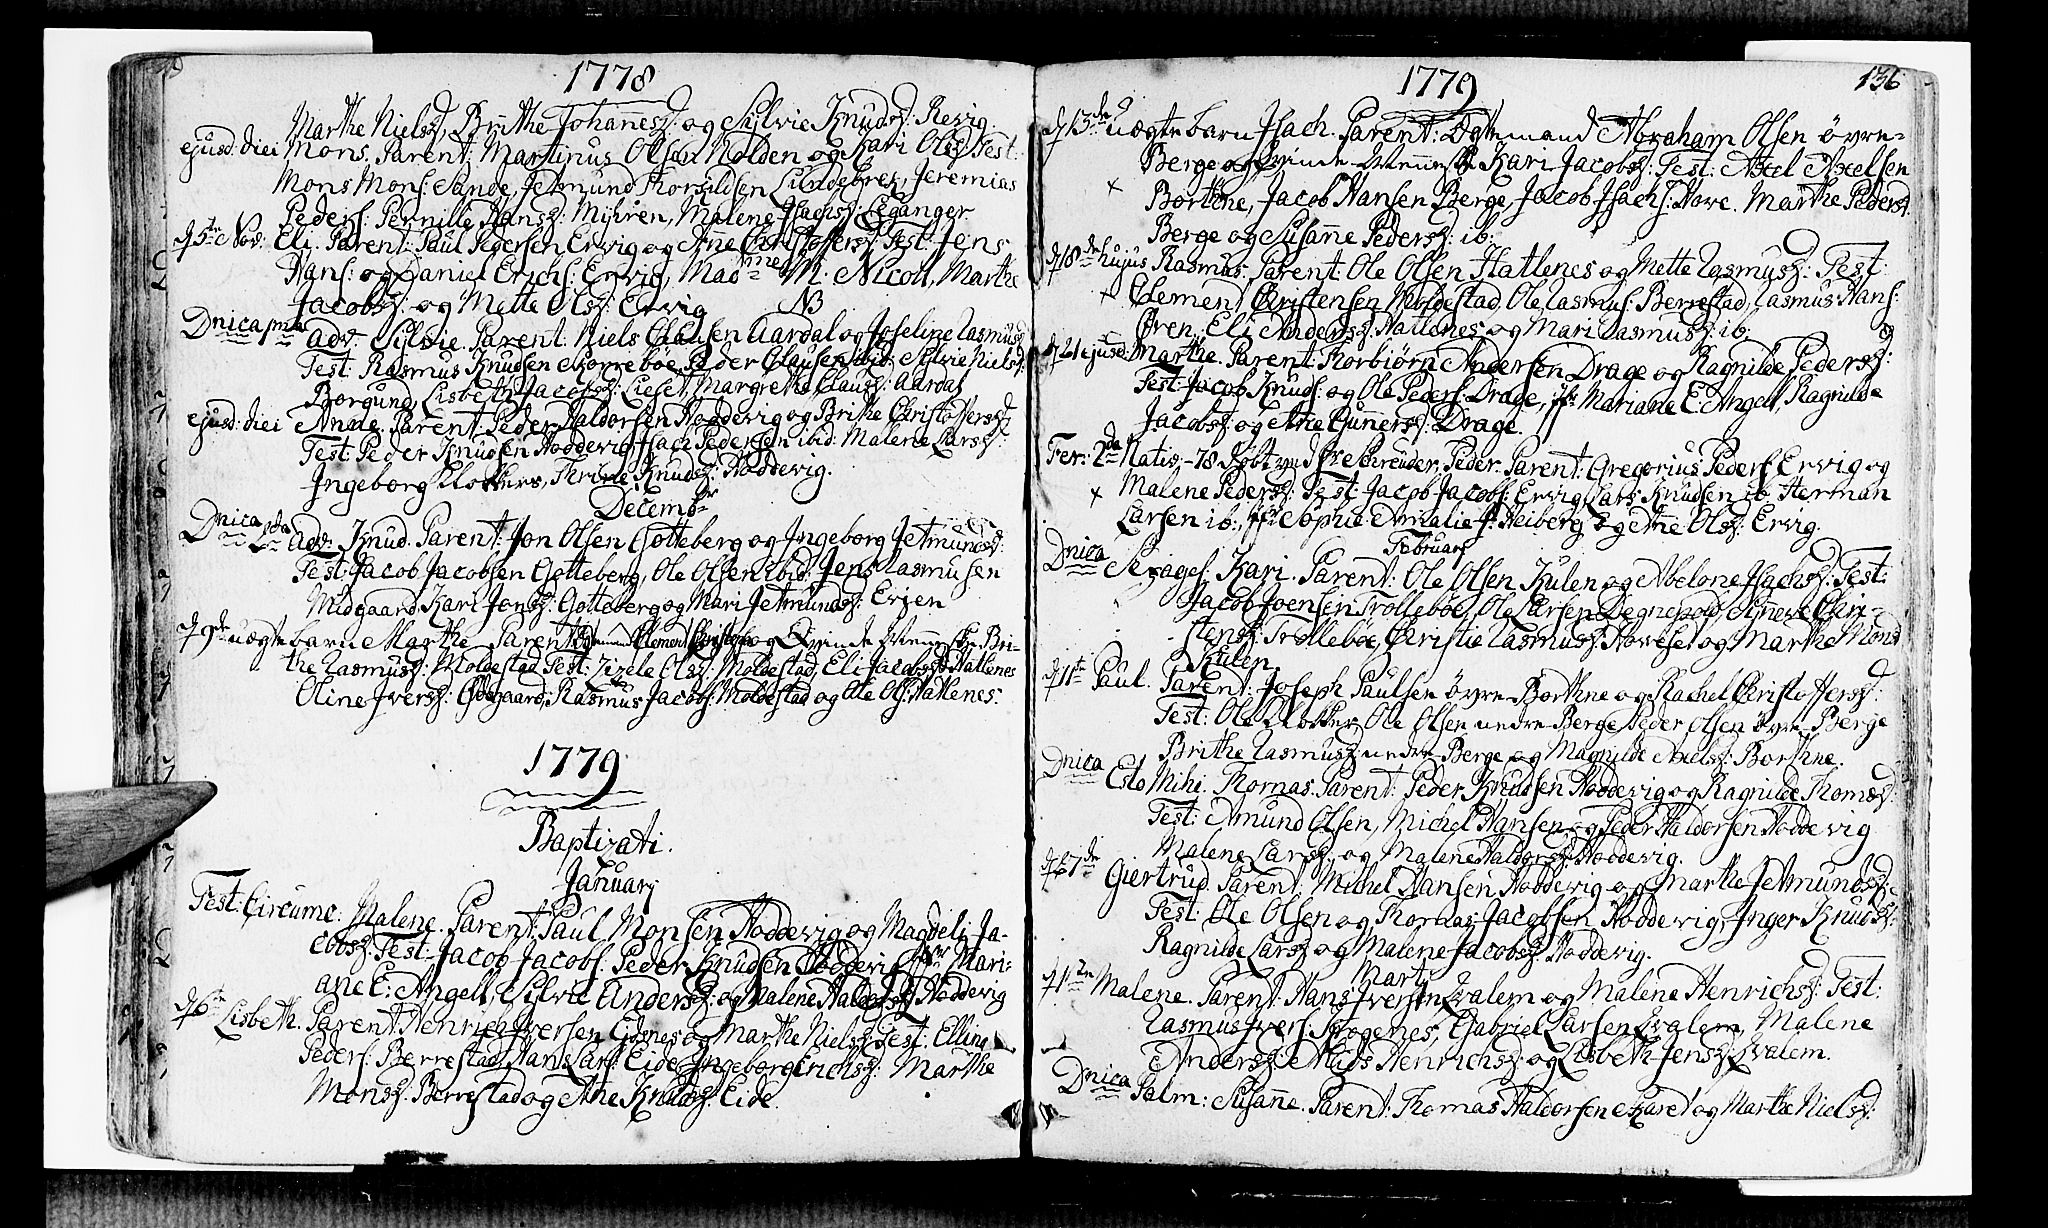 1778
Marthe Nielsd, Brithe Johannesd: og Sylvie Knudsd: Revig.
ejusd: diei Mons. Parent: Martinus Olsen Nolden og Kari Olesd Test:
Mons Mons: Sande, Jetmund Thorsildsen Lundebrek, Jeremias
Peders: Pernille Hansd: Myhren, Malene Isachsd: Leganger
d 5te Nov: Eli. Parent: Paul Pedersen Ervig og Anne Christoffersd: Test: Jens
Hans: og Daniel Erichs: Ervig, Madme M: Nicoll, Marthe
Jacobsd: og Mette Olsd: Ervig NB
Dnica pma Adv: Silvie. Parent: Niels Clausen Aardal og Joseline Rasmusd
Test: Rasmus Knudsen Morrebøe, Peder Clausen ibid: Sylvie Nielsd:
Borgund, Lisbeth Jacobsd: Liset, Margrethe Clausd: Aardal
ejusd: diei Anne. Parent: Peder Haldorsen Hoddevig og Brithe Christoffersd
Test: Peder Knudsen Hoddevig, Isach Pedersen ibid: Malene Larsd:
Ingeborg Klokkers, Thrine Knudsd: Hoddevig.
Decembr
Dnica 2da Adv: Knud. Parent: Jon Olsen Gotteberg og Ingeborg Jetmundsd:
Test: Jacob Jacobsen Gotteberg, Ole Olsen ibid: Jens Rasmusen
Midgaard, Kari Jonsd: Gotteberg og Mari Jetmundsd: Erven
d 9de uægte barn Marthe Parent: Clement Christens og Qvinde Mennesket Bri-
the Rasmusd: Moldestad Test: Zizele Olsd: Moldestad, Eli Jacobsd: Hatlenes
Oline Iversd: Ødegaard, Rasmus Jacobs: Moldestad og Ole Ols: Hatlenes.
1779
Baptizati.
Januarj
Fest: Circumc: Malene. Parent: Paul Monsen Hoddevig og Magdeli Ja-
cobsd: Test: Jacob Jacobs: Peder Knudsen Hoddevig, Mari-
ane E: Angell, Silvie Andersd: og Malene Haldorsd: Hoddevig
d 6te Lisbeth. Parent: Henrich Iversen Eidsnes og Marthe Nielsd: Test: Elling
Peders: Berrestad, Hans Lars: Eide, Ingeborg Erichsd: Marthe
Monsd: Berrestad og Ane Knudsd: Eide.
1779
136
d 13de uægte barn Isach. Parent: Ægtemand Abraham Olsen øvre-
Berge og Qvinde-Menneske Kari Jacobsd: Test: Axel Axelsen
× Borthne, Jacob Hansen Berge, Jacob Isachs: Hove. Marthe Pedersd.
Berge og Susanne Pedersd: ib:
d 18de hujus Rasmus. Parent: Ole Olsen Hatlenes og Mette Rasmusd: Test:
× Clement Christensen Moldestad, Ole Rasmus: Berrestad, Rasmus Hans:
Øren, Eli Andersd: Hatlenes og Mari Rasmusd: ib:
d 21 ejusd: Marthe. Parent: Thorbiørn Andersen Drage og Ragnilde Pedersd:
Test: Jacob Knuds: og Ole Peders: Drage, Mariane E: Angell, Ragnilde
Jacobsd: og Ane Gunnersd: Drage.
Fer: 2da Nativ: -78 døbt ved Hr Schreuder, Peder. Parent: Gregorius Peders: Ervig og
× Malene Pedersd: Test: Jacob Jacobs: Ervig, Lars Knudsen ib, Herman
Larsen ib:, Sophie Amalie Heiberg og Ane Olsd: Ervig.
Februarj
Dnica Sexages: Kari. Parent: Ole Olsen Kulen og Abelone Isachsd: Test:
Jacob Joensen Trolleböe, Ole Larsen Degnepold, Anne Chri-
stensd: Trolleböe, Christie Rasmusd: Hoveset og Marthe Monsd
Kulen
d 11te Paul. Parent: Joseph Paulsen øvre Borthne og Rachel Christoffersd:
Test: Ole Klokker, Ole Olsen nedre Berge, Peder Olsen øvre Berge
Brithe Rasmusd: nedre Berge og Magnilde Nielsd: Borthne.
Dnica Esto Mihi. Thomas. Parent: Peder Knudsen Hoddevig og Ragnilde Thomesd:
Test: Amund Olsen, Michel Hansen og Peder Haldorsen Hoddevig
Malene Larsd: og Malene Haldorsd: Hoddevig.
d 17de Giertrud. Parent: Michel Hansen Hoddevig og Marthe Jetmundsd:
Test: Ole Olsen og Thomas Jacobsen Hoddevig, Inger Knudsd:
Ragnilde Larsd: og Malene Jacobsd: Hoddevig.
Martj
d 11te Malene. Parent: Hans Iversen Qvalem og Malene Henrichsd: Test:
Rasmus Ivers: Skogenes, Gabriel Larsen Qvalem, Malene
Andersd: Alids Henrichsd: og Lisbeth Jensd: Qvalem.
Dnica Palm: Susanne. Parent: Thomas Haldorsen og Marthe Nielsd: